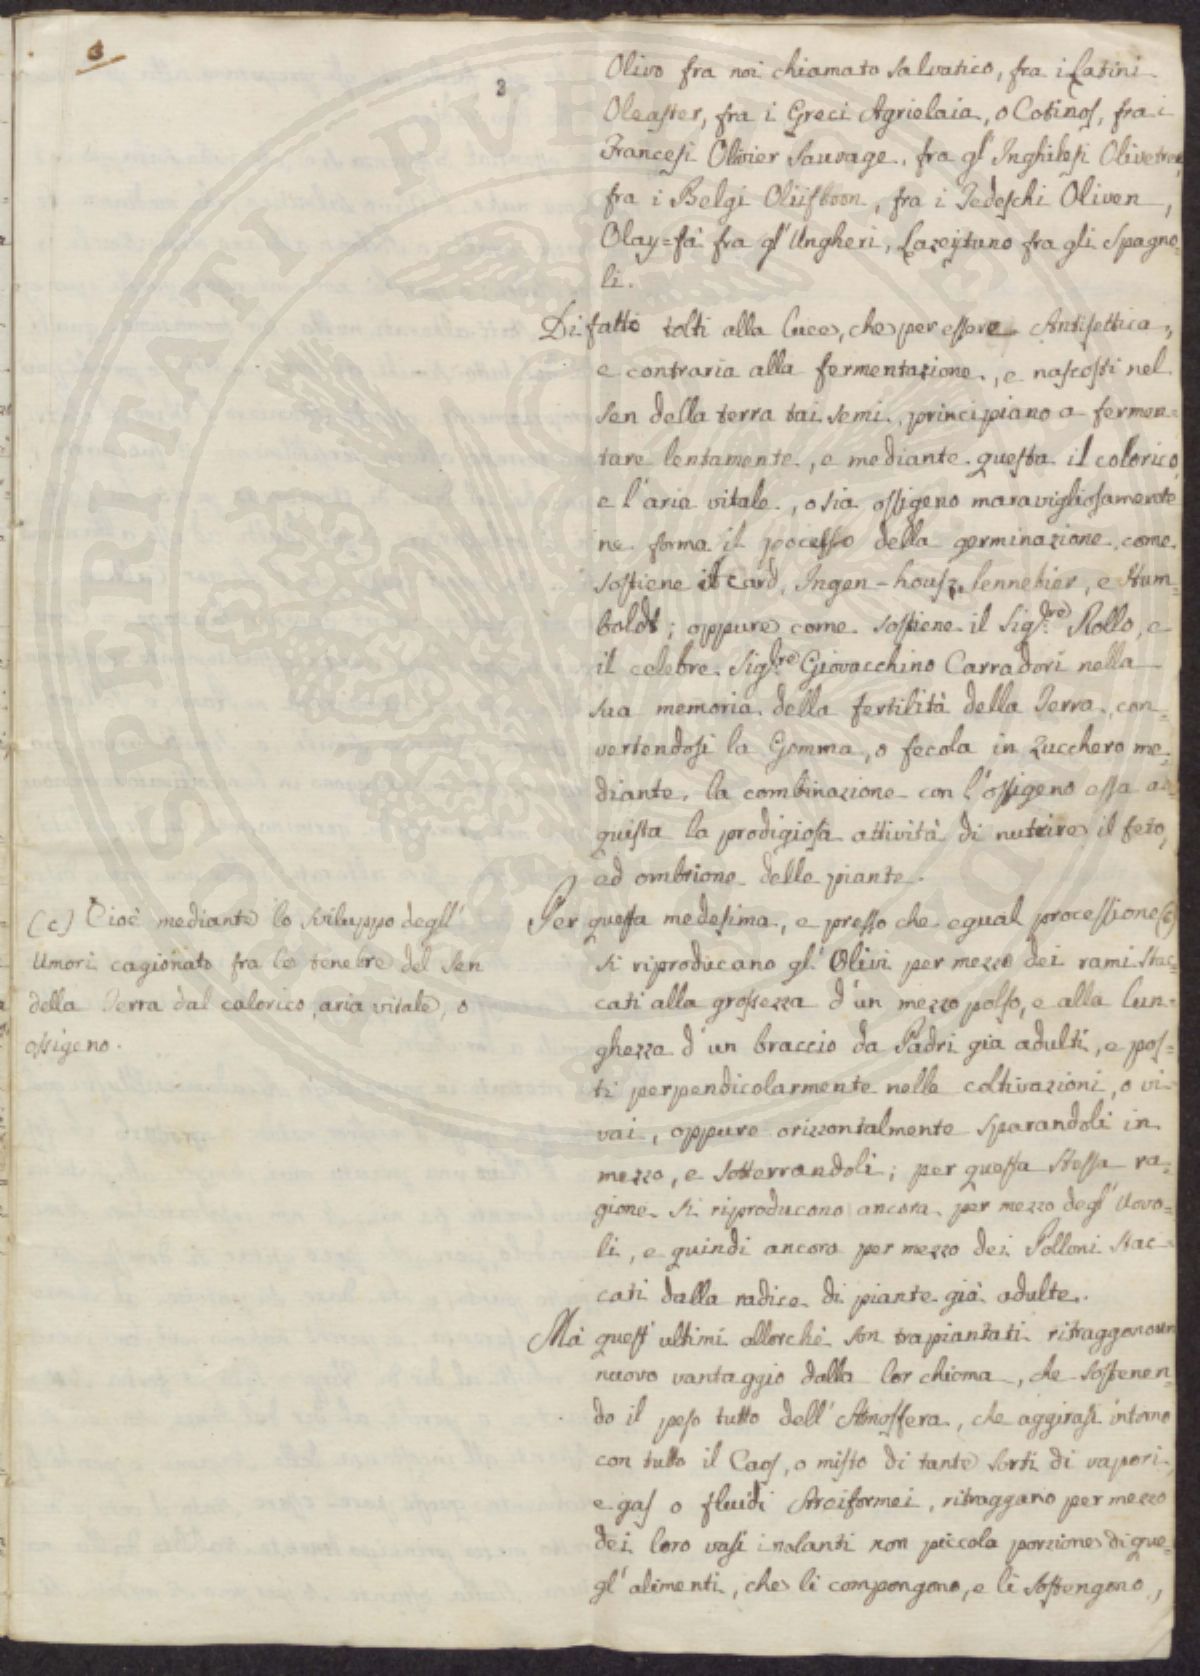 3
3
Olivo fra noi chiamato salvatico, fra i Latini
Oleaster, fra i Greci Agrielaia, o Cotinos, fra i
Francesi Olivier Sauvage, fra gl' Inghilesi Olivetree,
fra i Belgi Oliifboon, fra i Tedeschi Oliven,
Olay=fá fra gl' Ungheri, Lazeytuno fra gli Spagno=
li.
Di fatto tolti alla luce, che per essere Antisettica,
e contraria alla fermentazione, e nascosti nel
sen della terra tai semi, principiano a fermen=
tare lentamente, e mediante questa il calorico,
e l'aria vitale, o sia ossigeno maravigliosamente
ne forma il pocesso della germinazione, come
sostiene il Card, Ingen-housz, Sennebier, e Hum=
boldt; oppure come sostiene il Sig.re Rollo, e
il celebre Sig.re Giovacchino Carradori nella
sua memoria della fertilità della Terra, con=
vertendosi la Gomma, o fecola in Zucchero me=
diante la combinazione con l'ossigeno essa ac=
quista la prodigiosa attività di nutrire il feto,
ed ombrione delle piante.
Per questa medesima, e presso che egual processione (c)
si riproducano gl' Olivi per mezzo dei rami stac=
cati alla grossezza d'un mezzo polso, e alla lun=
ghezza d'un braccio da Padri già adulti, e pos=
ti perpendicolarmente nelle coltivazioni, o vi=
vai, oppure orizzontalmente sparandoli in
mezzo, e sotterrandoli; per questa stessa ra=
gione si riproducono ancora per mezzo degl' Uovo=
li, e quindi ancora per mezzo dei Polloni stac=
cati dalla radice di piante già adulte.
Ma quest' ultimi allorchè son trapiantati ritraggono un
nuovo vantaggio dalla lor chioma, che sostenen=
do il peso tutto dell' Atmosfera, che aggirasi intorno
con tutto il Caos, o misto di tante sorti di vapori,
e gas o fluidi Areiformei, ritraggano per mezzo
dei loro vasi inalanti non piccola porzione di que=
gl' alimenti, che li compongono, e li sostengono,
(c) Cioè mediante lo sviluppo degl'
Umori cagionato fra le tenebre del sen
della Terra dal calorico, aria vitale, o
ossigeno.
PROSPERITATI PUBLICAE